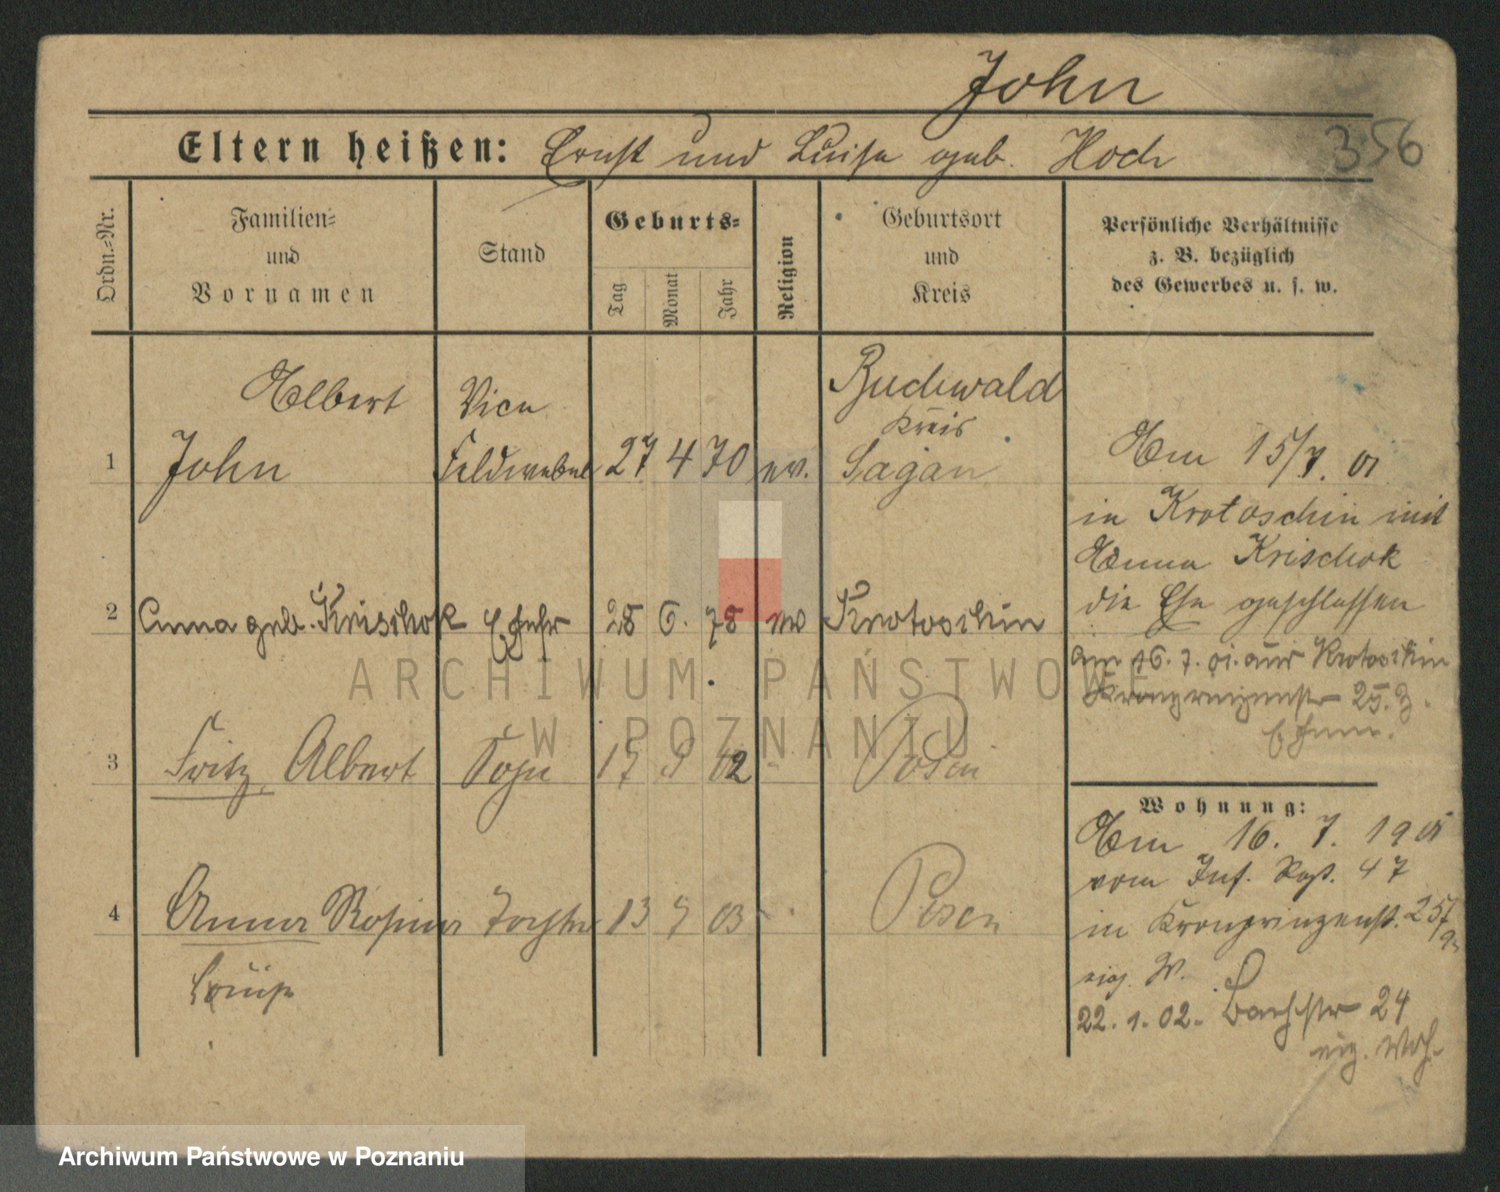 John
356
Eltern heißen: Ernst und Luise geb. Hoch
Ordn.-Nr.
Familien-
und
Vornamen
Stand
Geburts-
Tag
Monat
Jahr
Religion
Geburtsort
und
Kreis
Persönliche Verhältnisse
z. B. bezüglich
des Gewerbes u. s. w.
Albert
John
1
Vice
Feldwebel
27 4 70
ev.
Buchwald
Kreis
Sagan
Am 15/7. 01
in Krotoschin mit
Anna Krischok
die Ehe geschlossen
2 Anna geb. Krischok Ehefr 28 6. 78 ev Krotoschin
am 16. 7. 01. aus Krotoschin
Kronprinzenstr 25.
3 Fritz Albert Sohn 17 9 02 Posen
4 Anna Rosina Tochter 13 9 03 Posen
Louise
Wohnung:
Am 16. 7. 1901
vom Inf. Rgt. 47
in Kronprinzenst. 25
eig. W.
22. 1. 02. Bachstr 24
eig. Woh.
ARCHIWUM PAŃSTWOWE
W POZNANIU
Archiwum Państwowe w Poznaniu